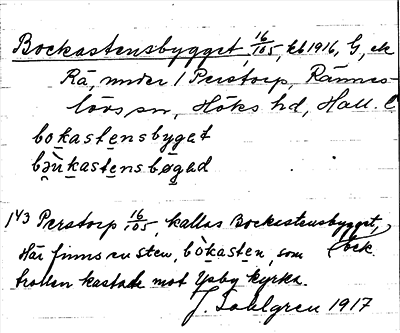 Bockastensbygget, 16/105, kb 1916, G, ek
Rå, under 1 Perstorp, Rännes-
lövs sn, Höks hd, Hall. l
bokastensbyget
bəu̇kastensbøgəd
1/43 Perstorp 16/105, kallas Bockastensbygget,
Här finns en sten, bòkasten, som
trollen kastade mot Ysby kyrka.
J. Sahlgren 1917